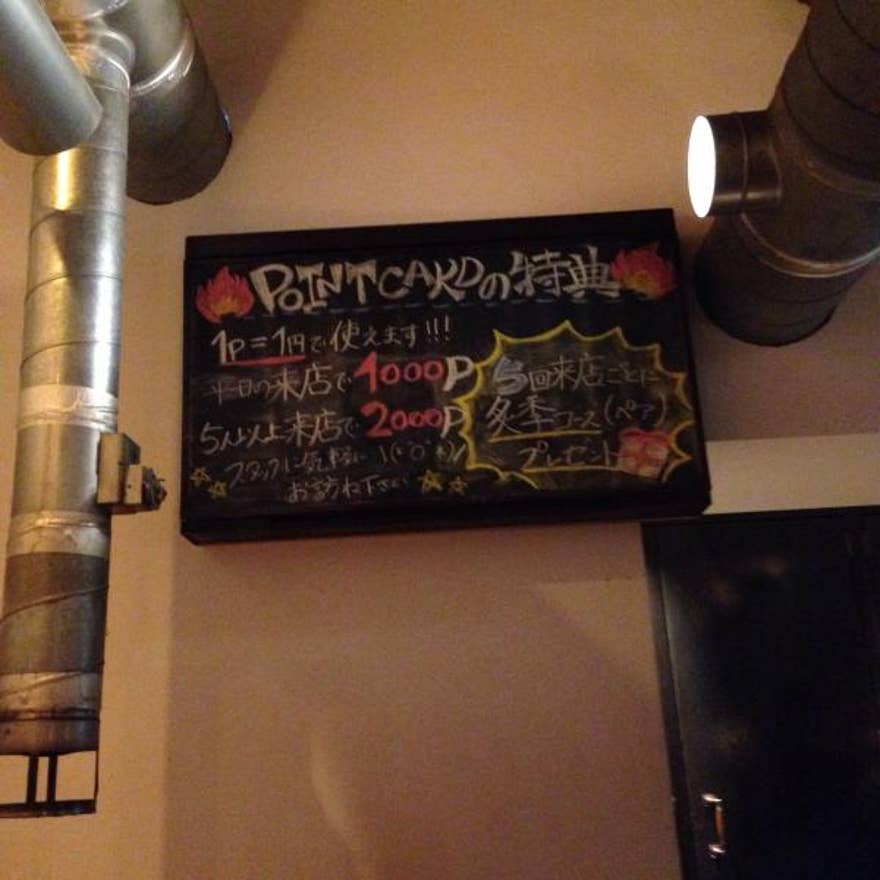 POINT CARDの特典
1P=1円で使えます!!!
平日の来店で1000P
5人以上来店で2000P
スタッフに気軽に
お訪ね下さい
5回来店ごとに
炙季コース(ペア)
プレゼント